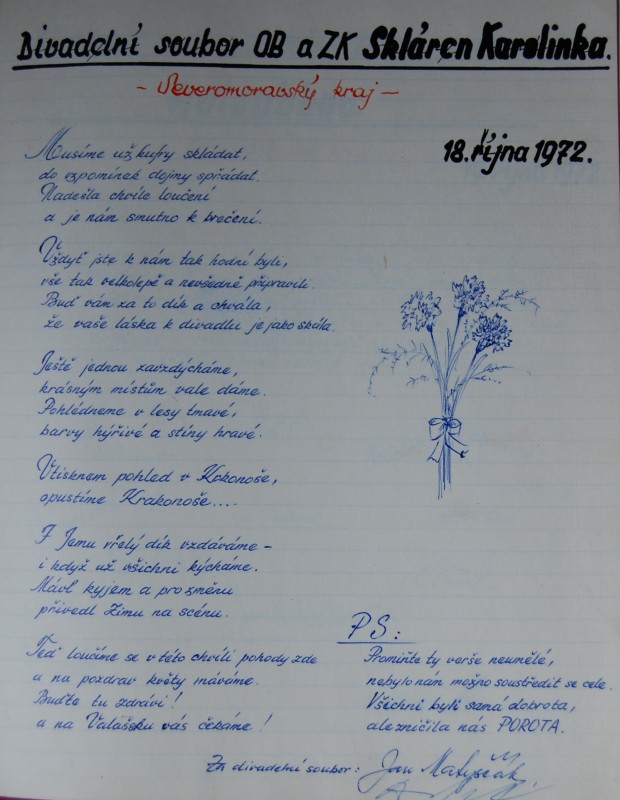 Divadelní soubor OB a ZK Skláren Karolinka.
- Severomoravský kraj -
18. října 1972.
Musíme už kufry skládat,
do vzpomínek dojmy spřádat.
Nadešla chvíle loučení
a je nám smutno k brečení.
Vždyť jste k nám tak hodní byli,
vše tak velkolepě a nevšedně připravili.
Buď vám za to dík a chvála,
že vaše láska k divadlu je jako skála.
Ještě jednou zavzdycháme,
krásným místům vale dáme.
Pohlédneme v lesy tmavé,
barvy hýřivé a stíny hravé.
Vtisknem pohled v Kokonoše,
opustíme Krakonoše....
I Jemu vřelý dík vzdáváme -
i když už všichni kýcháme.
Mávl kyjem a pro změnu
přivedl Zimu na scénu.
Teď loučíme se v této chvíli pohody zde
a na pozdrav květy máváme.
Buďte tu zdrávi!
a na Valašsku vás čekáme!
PS:
Promiňte ty verše neumělé,
nebylo nám možno soustředit se cele.
Všichni byli samá dobrota,
ale zničila nás POROTA.
Za divadelní soubor: Jan Matyščák